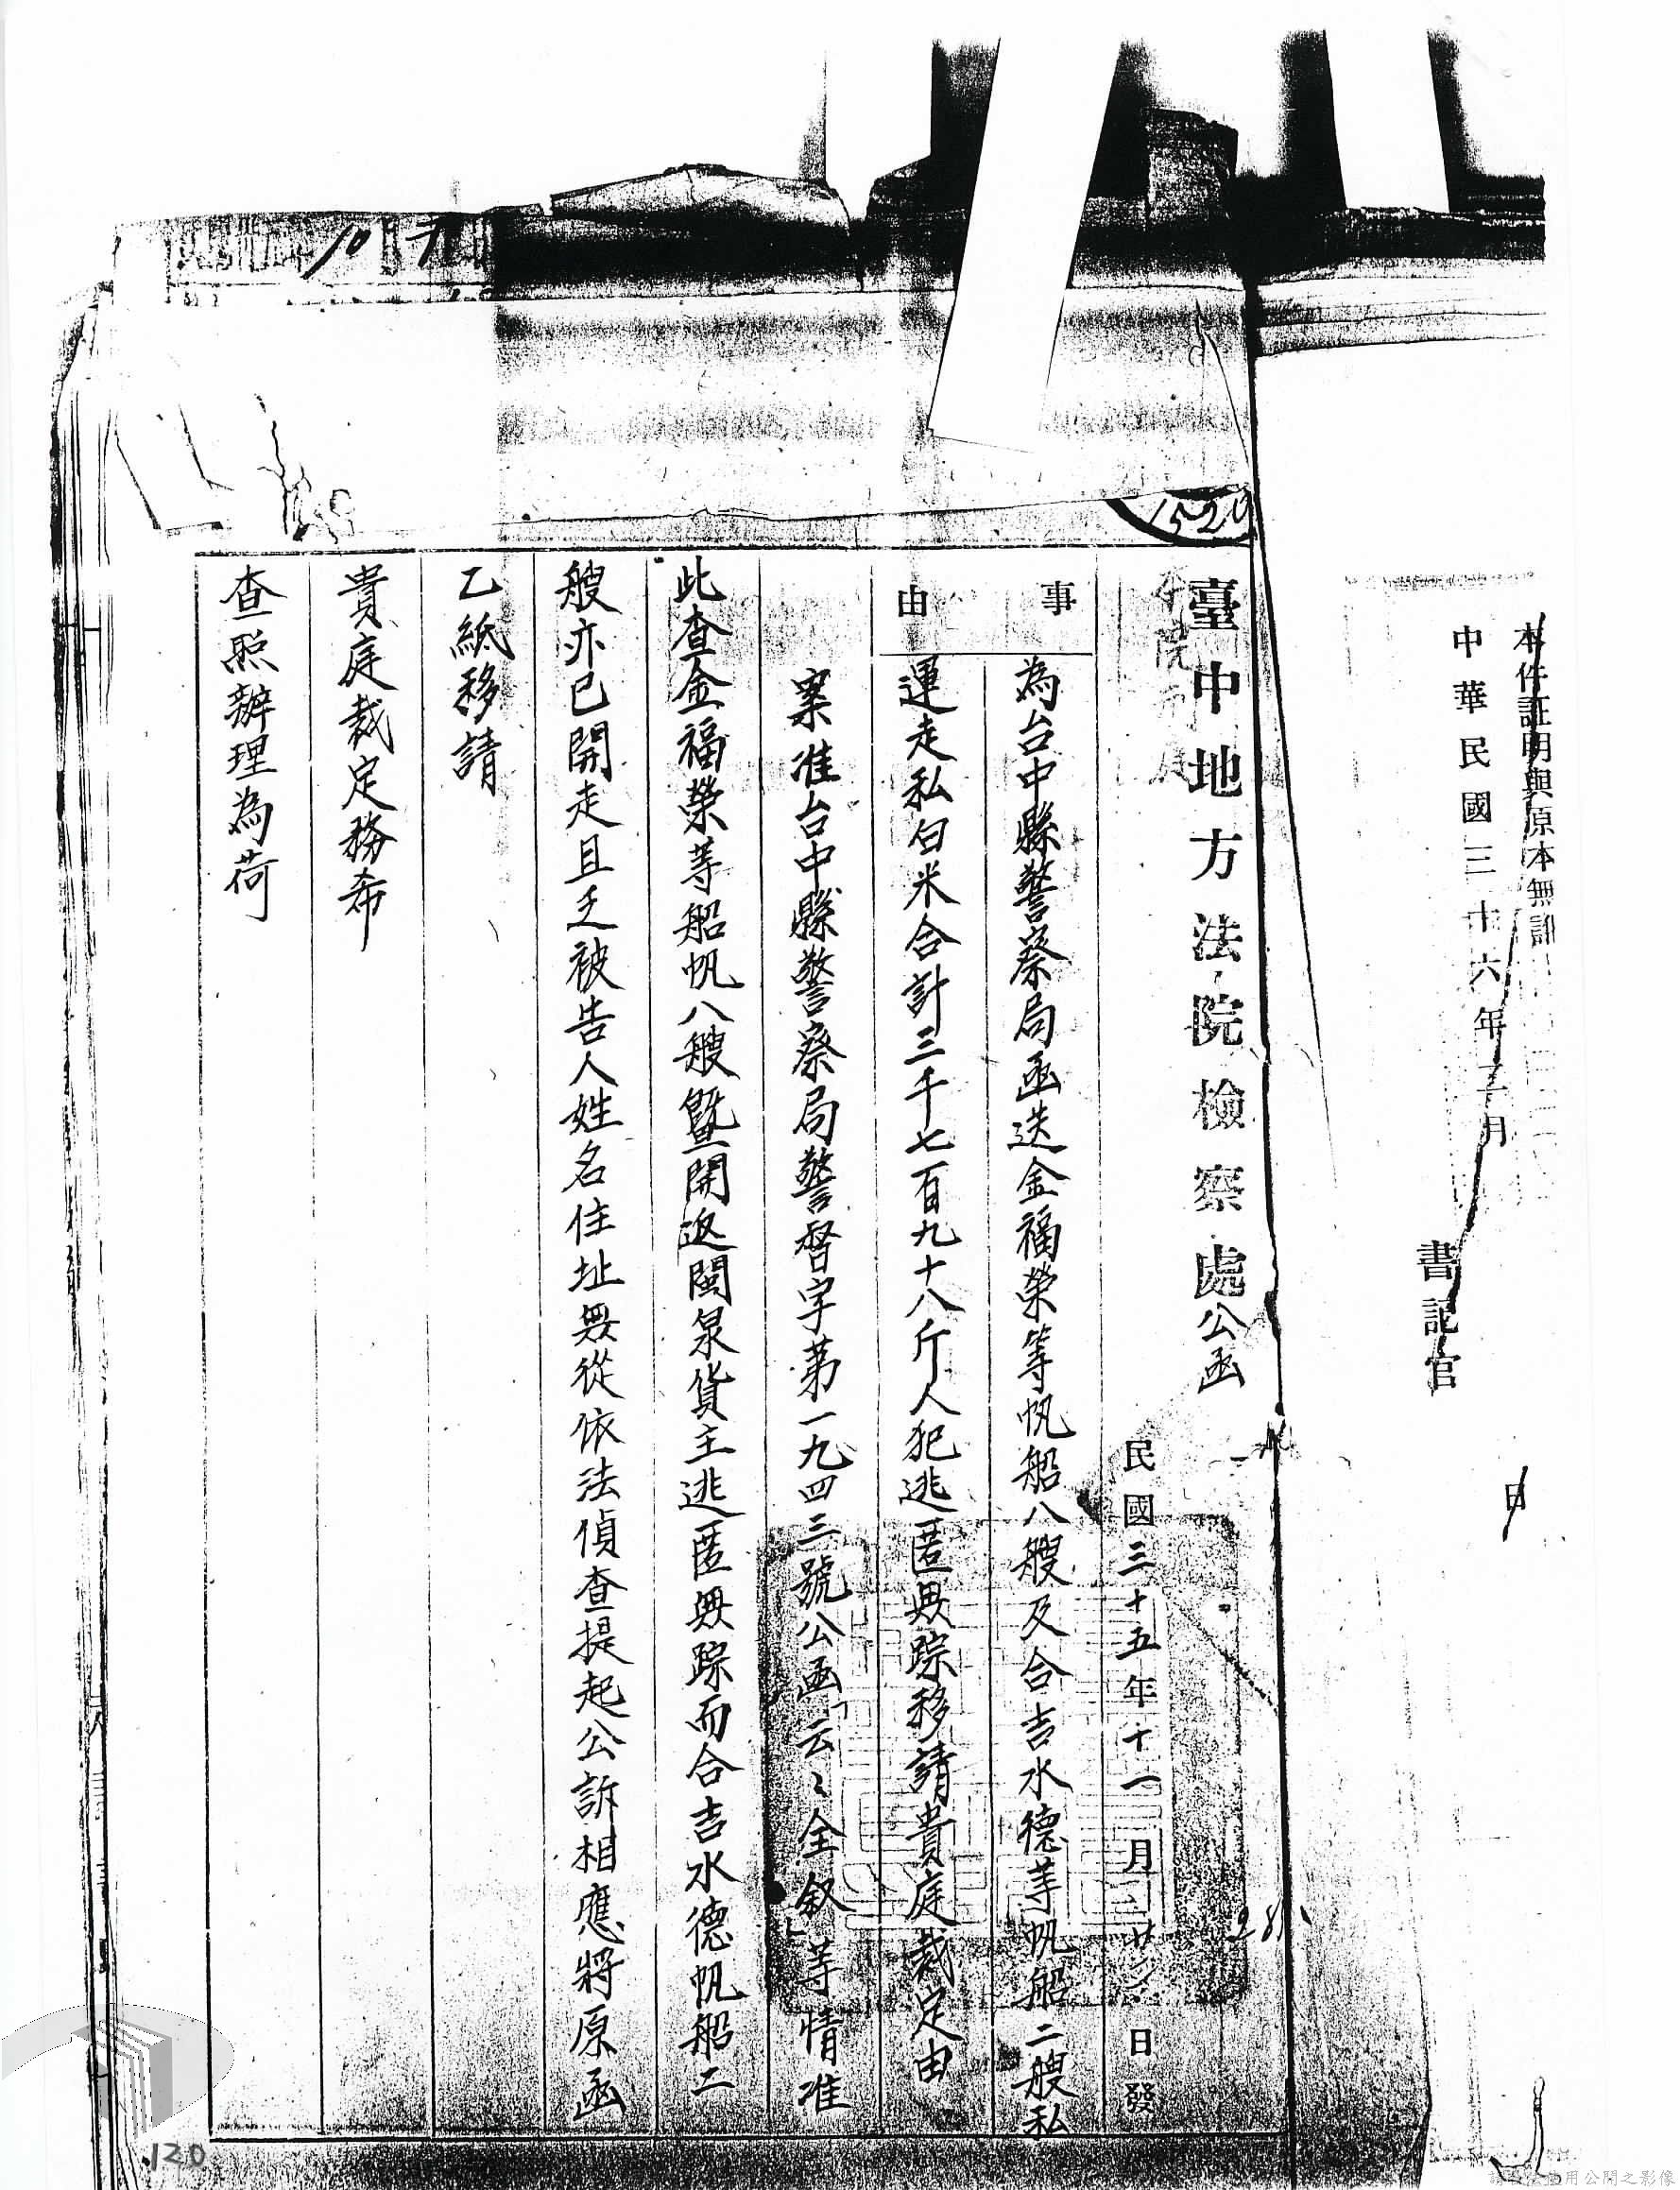 本件証明與原本無訛
中華民國三十六年二月 日
書記官
臺中地方法院檢察處公函
民國三十五年十一月 日發
事由
為台中縣警察局函送金福榮等帆船八艘及合吉水德等帆船二艘私
運走私白米合計三千七百九十八斤人犯逃匿無踪移請貴庭裁定由
案准台中縣警察局警督字第一九四三號公函「云〻全叙」等情准
此查金福榮等船帆八艘暨開返閩泉貨主逃匿無踪而合吉水德帆船二
艘亦已開走且乏被告人姓名住址無從依法偵查提起公訴相應將原函
乙紙移請
貴庭裁定務希
查照辦理為荷
1520
107
28
120